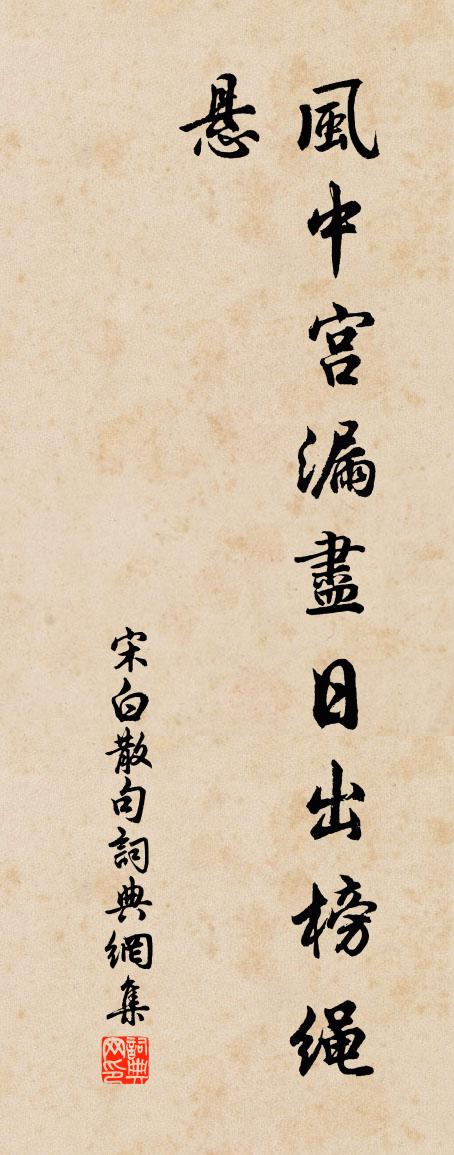 風中宮漏盡日出榜繩
悬
宋白散句詞典網集
詞典网印